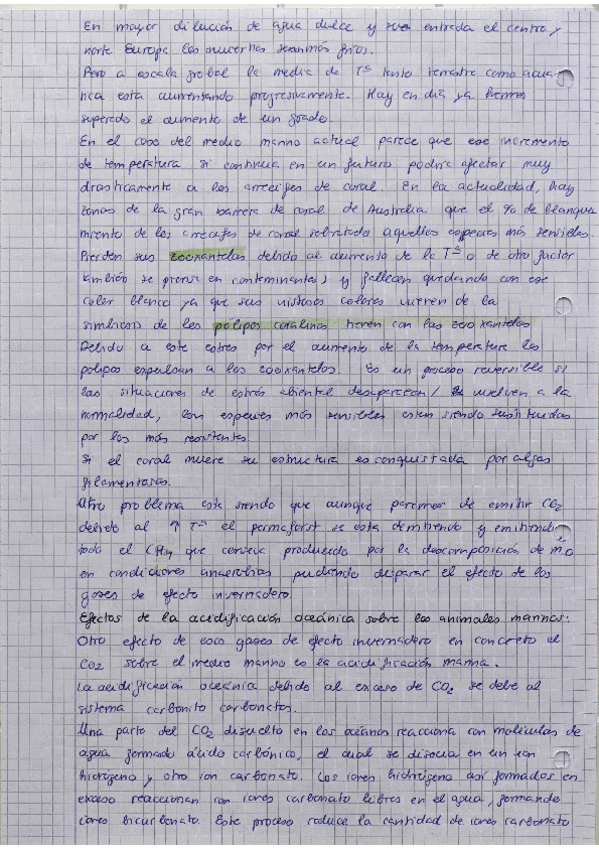 En mayor dilución de agua dulce y entrada el centro y
norte Europa los inviernos seran más fríos.
Pero a escala global la media de Tª tanto terrestre como acuá-
tica esta aumentando progresivamente. Hay en día ya hemos
superado el aumento de un grado.
En el caso del medio marino actual parece que ese incremento
de temperatura si continua en un futuro podría afectar muy
drasticamente a los arrecifes de coral. En la actualidad, hay
zonas de la gran barrera de coral de Australia que el % de blanquea
miento de los arrecifes de coral sobretodo aquellos especies más sensibles.
Pierden sus zooxantelas debido al aumento de la Tª o de otro factor
también se piensa en contaminantes y fallecen quedando con ese
color blanco ya que sus vistosos colores vienen de la
simbiosis de los pólipos coralinos tienen con las zooxantelas
Debido a este estres por el aumento de la temperatura los
polipos expulsan a las zooxantelas. Es un proceso reversible si
las situaciones de estrés abiental desaparecen / vuelven a la
normalidad, las especies más sensibles estan siendo sustituidas
por las más resistentes.
Si el coral muere su estructura es conquistada por algas
filamentosas.
Otro problema esta siendo que aunque paremos de emitir CO2
debido al ↑ Tª el permafrost se esta derritiendo y emitiendo
todo el CH4 que conserva producido por la descomposición de m.o
en condiciones anaerobias pudiendo disparar el efecto de los
gases de efecto invernadero.
Efectos de la acidificación oceánica sobre los animales marinos:
Otro efecto de esos gases de efecto invernadero en concreto el
CO2 sobre el medio marino es la acidificación marina.
La acidificación oceánica debido al exceso de CO2 se debe al
sistema carbonito carbonatos.
Una parte del CO2 disuelto en los océanos reacciona con moléculas de
agua formado ácido carbónico, el cual se disocia en un ion
hidrógeno y otro ion carbonato. Los iones hidrógeno así formados en
exceso reaccionan con iones carbonato libres en el agua, formando
iones bicarbonato. Este proceso reduce la cantidad de iones carbonato